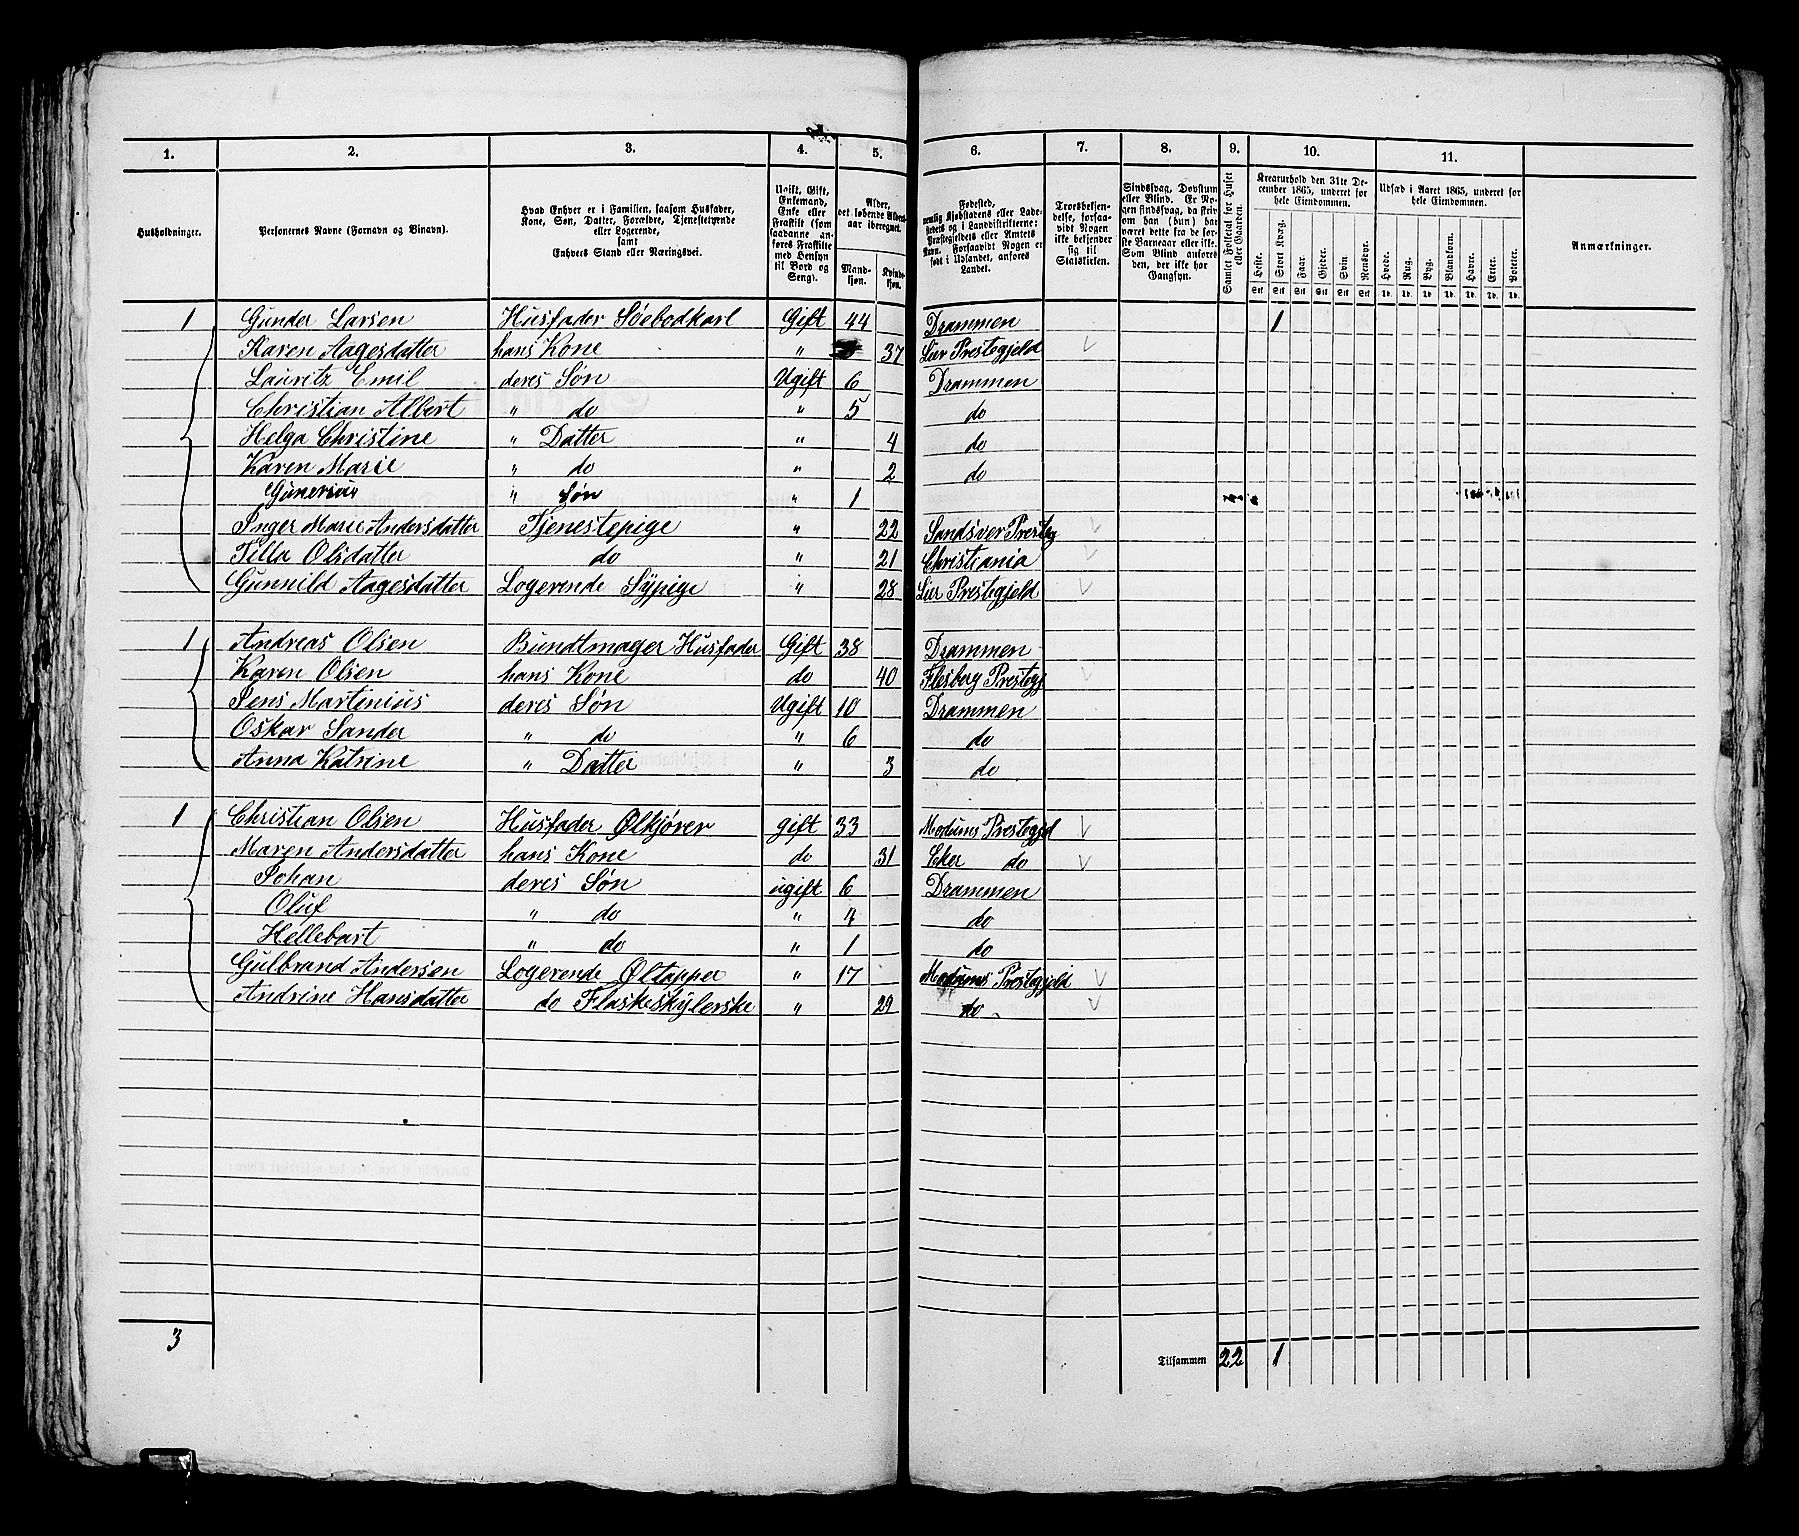 1. 2. 3. 4. 5. 6. 7. 8. 9. 10. 11.
Husholdninger.
Personernes Navne (Fornavn og Binavn).
Hvad Enhver er i Familien, saasom Husfader, Kone, Søn, Datter, Forældre, Tjenestetyende eller Logerende, samt Enhvers Stand eller Næringsvei.
Ugift, Gift, Enkemand, Enke eller Fraskilt (som saadanne anføres Fraskilte med Hensyn til Bord og Seng).
Alder, det løbende Alders-aar iberegnet.
Mand-kjøn. Kvinde-kjøn.
Fødested, nemlig Kjøbstadens eller Ladestedets og i Landdistrikterne: Præstegjeldets eller Amtets Navn. Forsaavidt Nogen er født i Udlandet, anføres Landet.
Troesbekjendelse, forsaavidt Nogen ikke bekjender sig til Statskirken.
Sindssvag, Døvstum eller Blind. Er Nogen sindssvag, da skrives om han (hun) har været dette fra de første Barneaar eller ikke. Som Blind anføres den, der ikke har Gangsyn.
Samlet Folketal for Huset eller Gaarden.
Kreaturhold den 31te December 1865, underet for hele Eiendommen.
Heste. Stort Kvæg. Faar. Gjeder. Svin. Rensdyr.
Udsæd i Aaret 1865, underet for hele Eiendommen.
Hvede. Rug. Byg. Blandkorn. Havre. Erter. Poteter.
Anmærkninger.
Stk Stk Stk Stk Stk Stk Td. Td. Td. Td. Td. Td. Td.
1 Gunder Larsen Husfader Söebodkarl Gift 44 Drammen 1
Karen Aagesdatter hans Kone " 37 Lier Prestegjeld
Lauritz Emil deres Søn Ugift 6 Drammen
Christian Albert " do " 5 do
Helga Christine " Datter " 4 do
Karen Marie " do " 2 do
Gunerius " Søn " 1
Inger Marie Andersdatter Tjenestepige " 22 Sandsver Presteg
Tilla Olsdatter do " 21 Christiania
Gunnild Aagesdatter Logerende Sypige " 28 Lier Prestegjeld
1 Andreas Olsen Bundtmager Husfader Gift 38 Drammen
Karen Olsen hans Kone do 40 Flesberg Prestegj
Jens Martinius deres Søn Ugift 10 Drammen
Oskar Sander " do " 6 do
Anna Katrine " Datter " 3 do
1 Christian Olsen Husfader Ølkjører gift 33 Modums Prestegjd
Maren Andersdatter hans Kone do 31 Eker do
Johan deres Søn ugift 6 Drammen
Oluf " do " 4 do
Hellebart " do " 1 do
Gulbrand Andersen Logerende Øltapper " 17 Modums Prestegjeld
Andrine Hansdatter do Flaskeskylerske " 29 do
3
Tilsammen 22 1